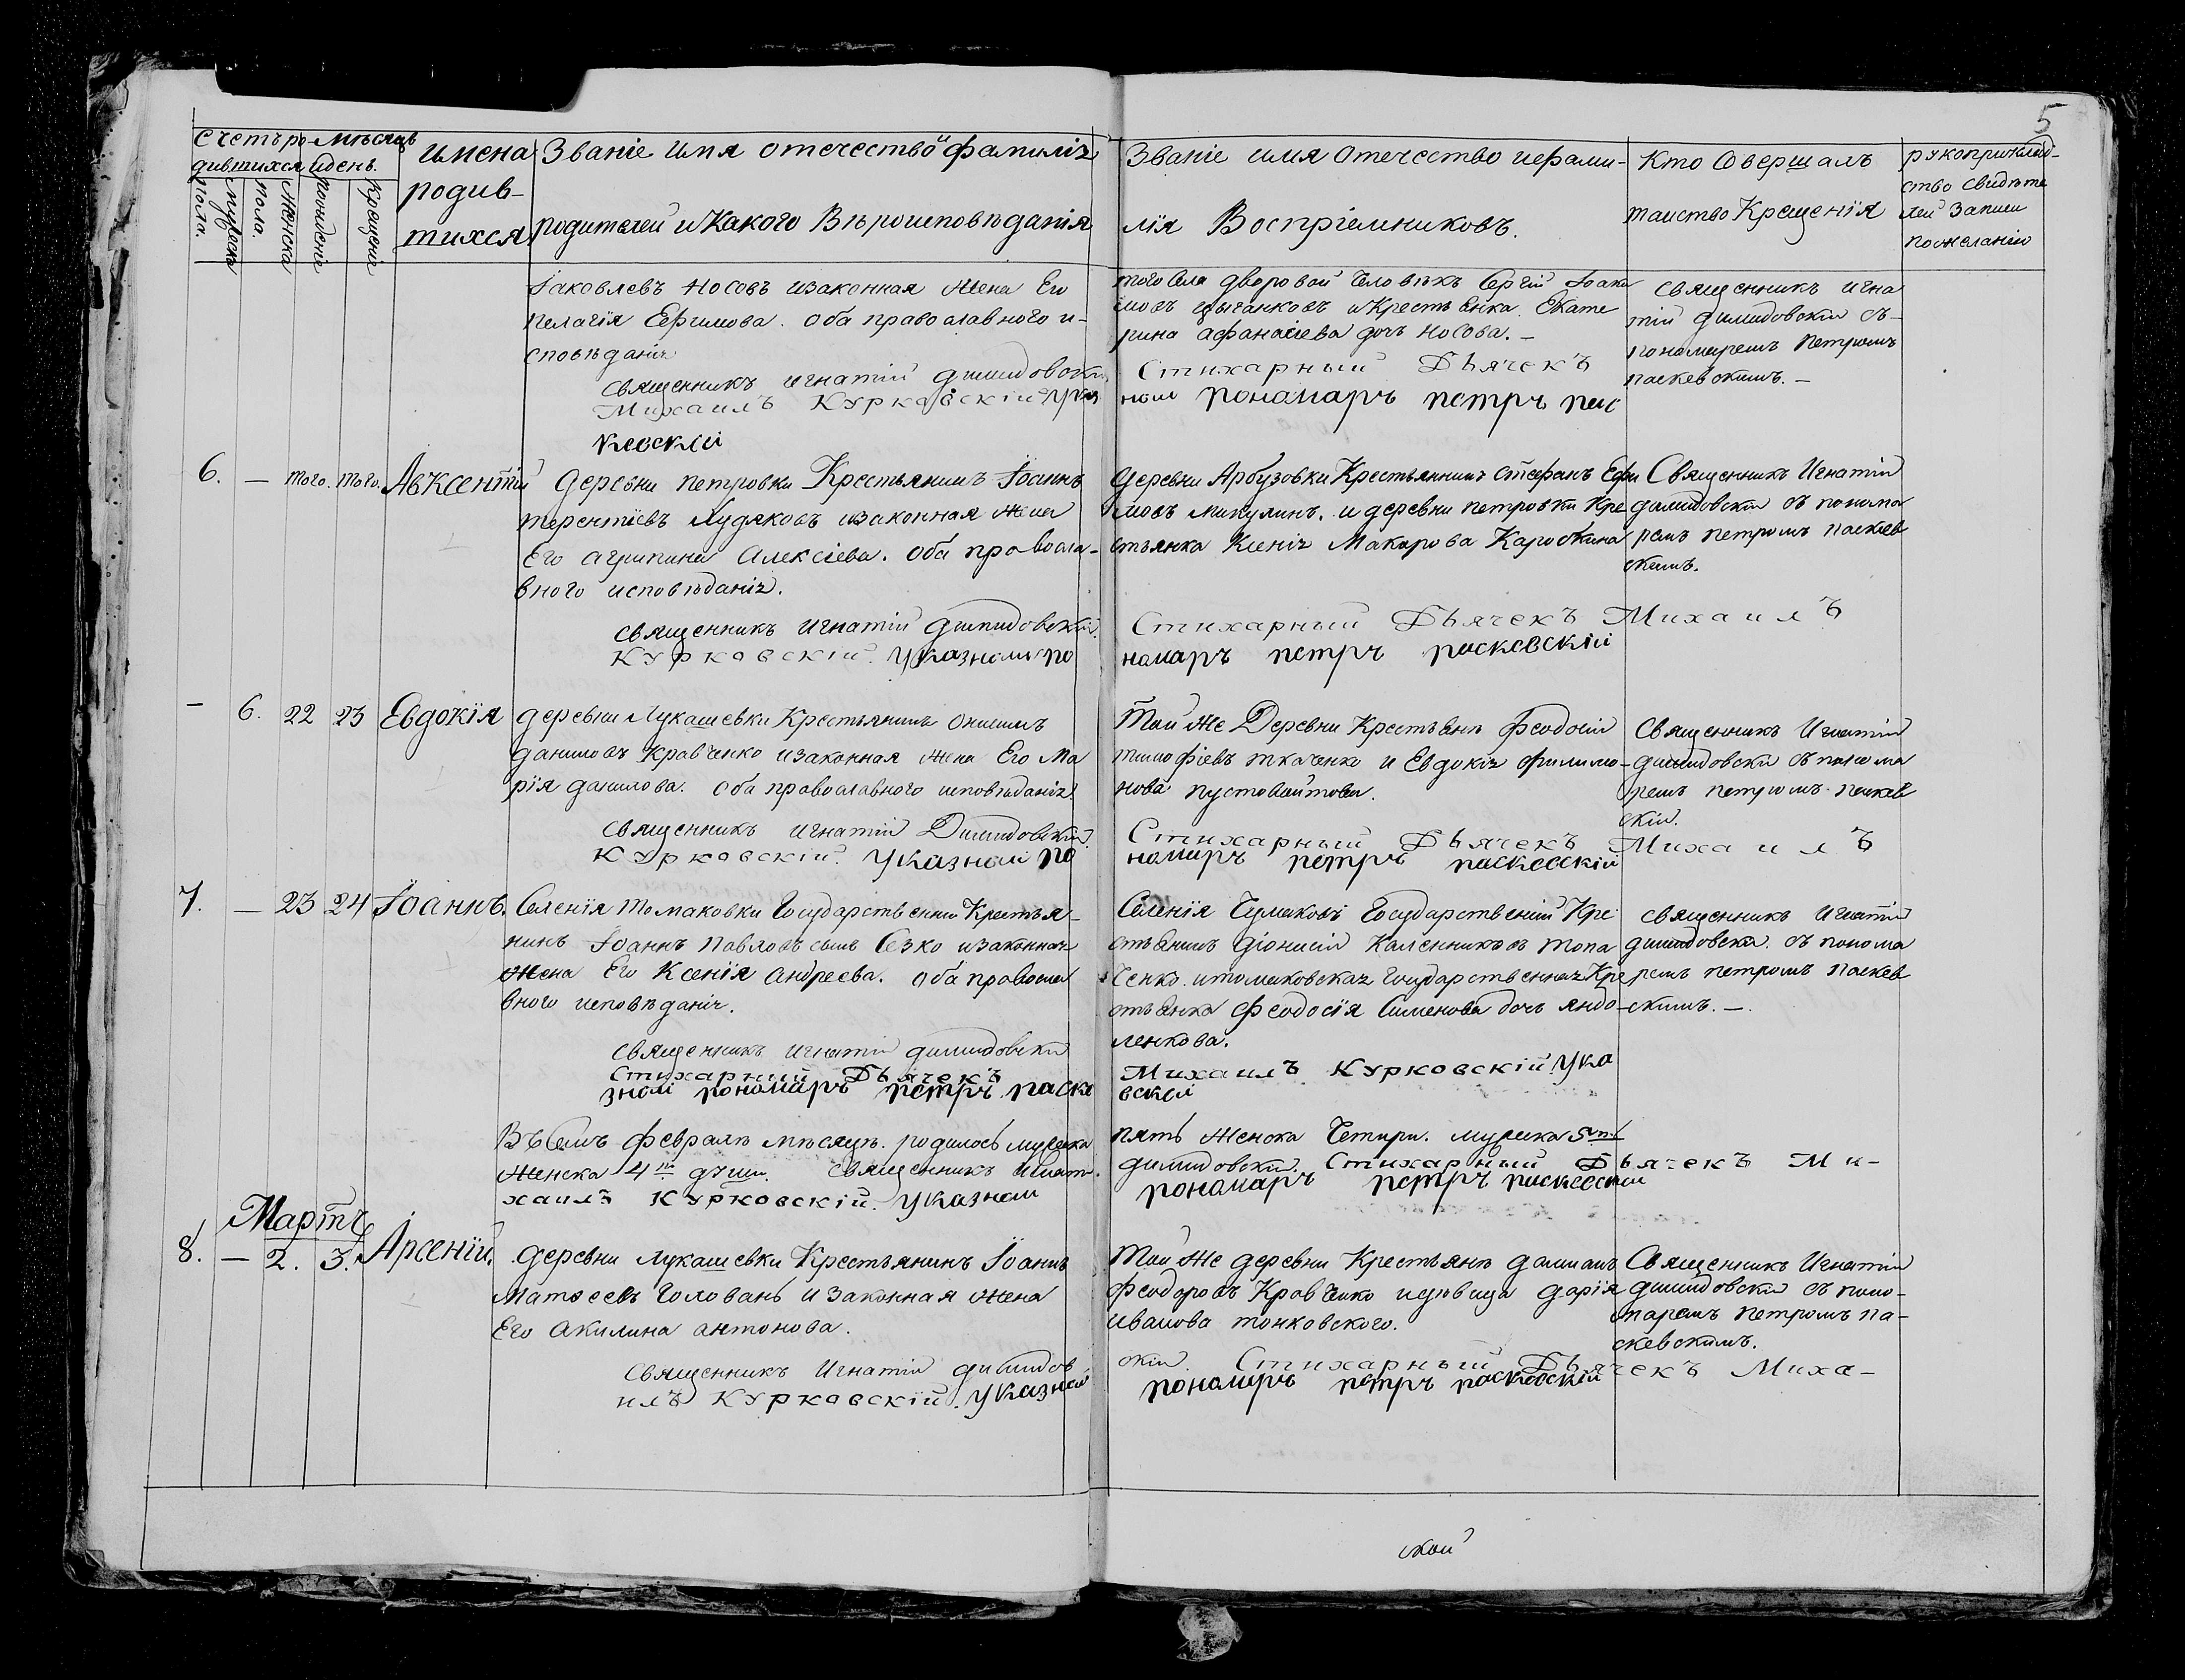 5
Счетъ ро-
дившихся
Мѣсяцъ
и день.
мужеска
пола.
Женска
пола.
рожденіе
Крещеніе
имена
родив-
шихся
Званіе имя отечество и фамилія
родителей и Какого Вѣроисповѣданія
Званіе имя отечество и фами-
лія Воспріемниковъ.
Кто Совершалъ
таинство Крещенія
рукоприклад-
ство свидѣте
лей записи
по желанію
Іаковлевъ Носовъ изаконная Жена Его
Пелагія Ефимова. оба православного и-
сповѣданія
священникъ игнатій димидовскій
Михаилъ Курковскій. Указ
кевскій
того Села дворовой Человѣкъ Сергій Іоаки
мовъ цыганковъ и Крестьянка Екате
рина афанасіева дочь Носова. —
Стихарный Дьячекъ
ной пономарь петръ пас
священникъ игна
тій димидовскій съ
пономаремъ петромъ
паскевскимъ. —
6. — того. того. Авксентій
деревни петровки Крестьянинъ Іоаннъ
терентіевъ Лудяковъ изаконная Жена
Его агрипина Алексіева. оба правосла-
вного исповѣданія.
священникъ игнатій димидовскій.
Курковскій. Указной по
деревни Арбузовки Крестьянинъ Стефанъ Ефи
мовъ микулинъ. и деревни петровки Кре
стьянка Ксенія Макарова Кароткина
Стихарный Дьячекъ Михаилъ
номарь петръ паскевскій
Священникъ Игнатій
димидовскій съ понома
ремъ петромъ паскев
скимъ.
— 6. 22 23 Евдокія
деревни Лукашевки Крестьянинъ онисимъ
даниловъ Кравченко изаконная жена Его Ма
рія данилова. оба православного исповѣданія.
священникъ игнатій Димидовскій.
Курковскій. Указной по
Той же Деревни Крестьяне феодосій
тимофіевъ ткаченко и Евдокія филимо-
нова пустовойтова.
Стихарный Дьячекъ Михаилъ
номарь петръ паскевскій
Священникъ Игнатій
димидовскій съ понома
ремъ петромъ паскев
скій.
7. — 23 24 Іоаннъ.
Селенія томаковки Государственный Крестья-
нинъ Іоаннъ Павловъ сынъ Сезко изаконная
Жена Его Ксенія Андреева. оба правосла
вного исповѣданія.
священникъ игнатій димидовскій
Стихарный Дьячекъ
зной пономарь петръ паске
Селенія Чумаковъ Государственній Кре
стьянинъ діонисій Каленниковъ топа
ченко. и томаковская Государственная Кре
стьянка феодосія Сименова дочь яндо-
ленкова.
Михаилъ Курковскій. Ука
вскій
священникъ Игнатій
димидовскій. съ понома
ремъ петромъ паскев
скимъ. —
Въ Семъ февралѣ мѣсяцѣ. родилось мужеска
Женска 4 души. священникъ игнат.
хаилъ Курковскій. Указной
пять женска Четыри. мужска 5
димидовскій. Стихарный Дьячекъ Ми-
пономарь петръ паскевскій
Мартъ
8. — 2. 3. Арсеній.
деревни лукашевки Крестьянинъ Іоаннъ
матѳеевъ Головань и законная Жена
Его акилина антонова.
священникъ Игнатій димидов
илъ Курковскій. Указной
Той Же деревни Крестьяне даміанъ
феодоровъ Кравченко и дювица дарія
иванова тонковского.
скій. Стихарный Дьячекъ Миха-
пономарь петръ паскевскій
Священникъ Игнатій
димидовскій съ поно-
маремъ петромъ па-
скевскимъ.